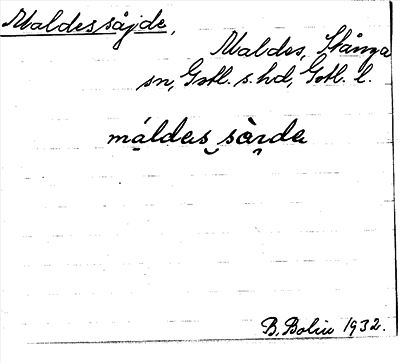 Maldessåjde,
Maldes, Stånga
sn, Gotl. s. hd, Gotl. l.
máldas sàrda
B. Bolin 1932.